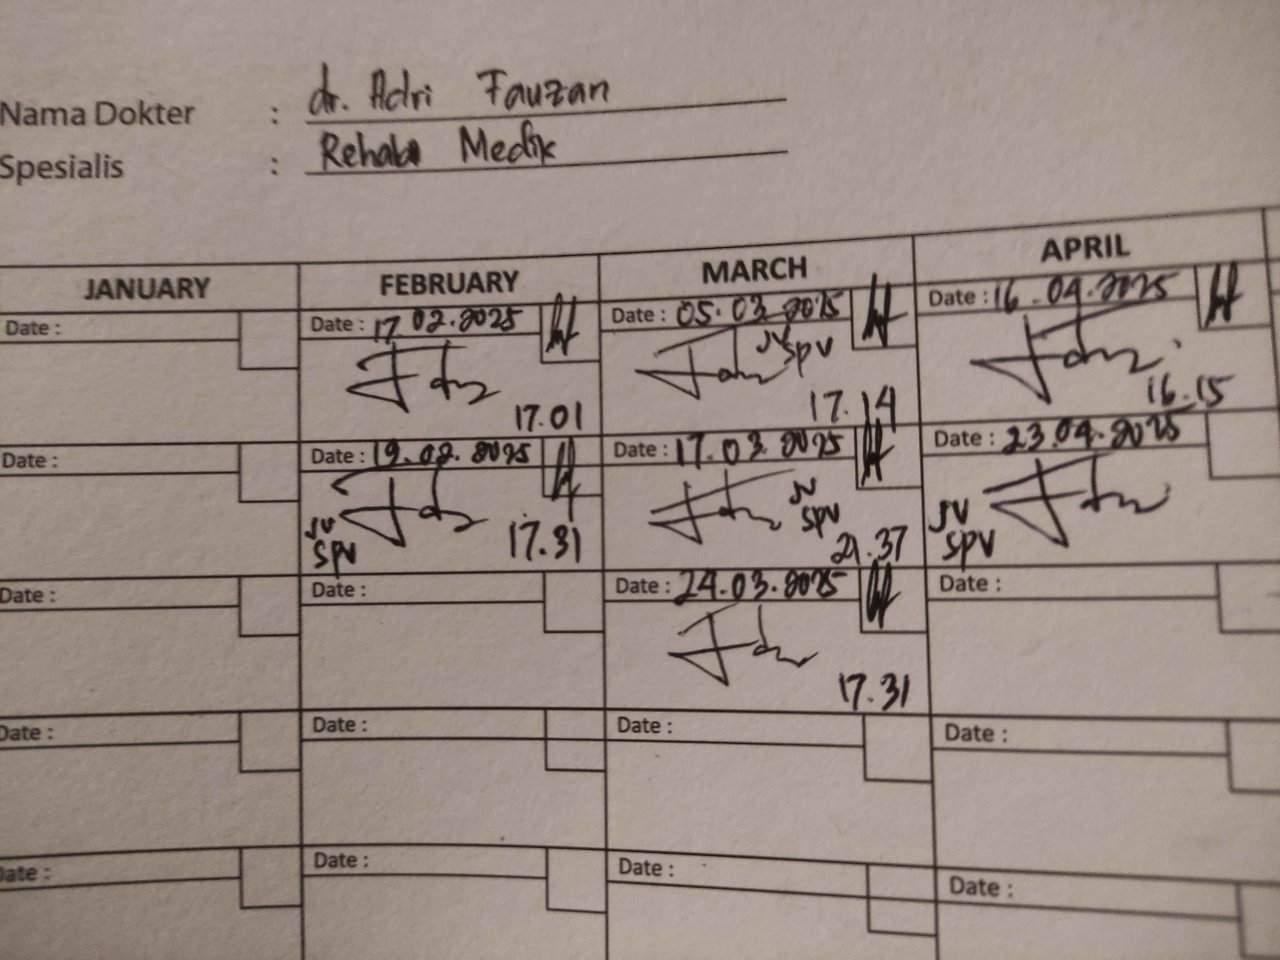 Nama Dokter : dr. Adri Fauzan
Spesialis : Rehab Medik
JANUARY FEBRUARY MARCH APRIL
Date : Date : 17 02.2025 Date : 05.03 2025 Date : 16.04.2025
JV SPV
17.01 17.14 16.15
Date : Date : 19.02.2025 Date : 17.03.2025 Date : 23.04.2025
JV SPV 17.31 JV SPV 21.37 JV SPV
Date : Date : Date : 24.03.2025 Date :
17.31
Date : Date : Date : Date :
Date : Date : Date : Date :